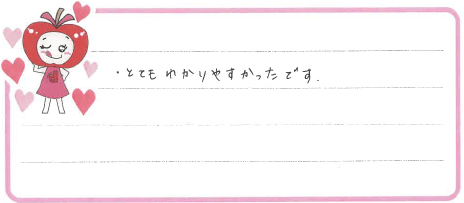 ・とてもわかりやすかったです.